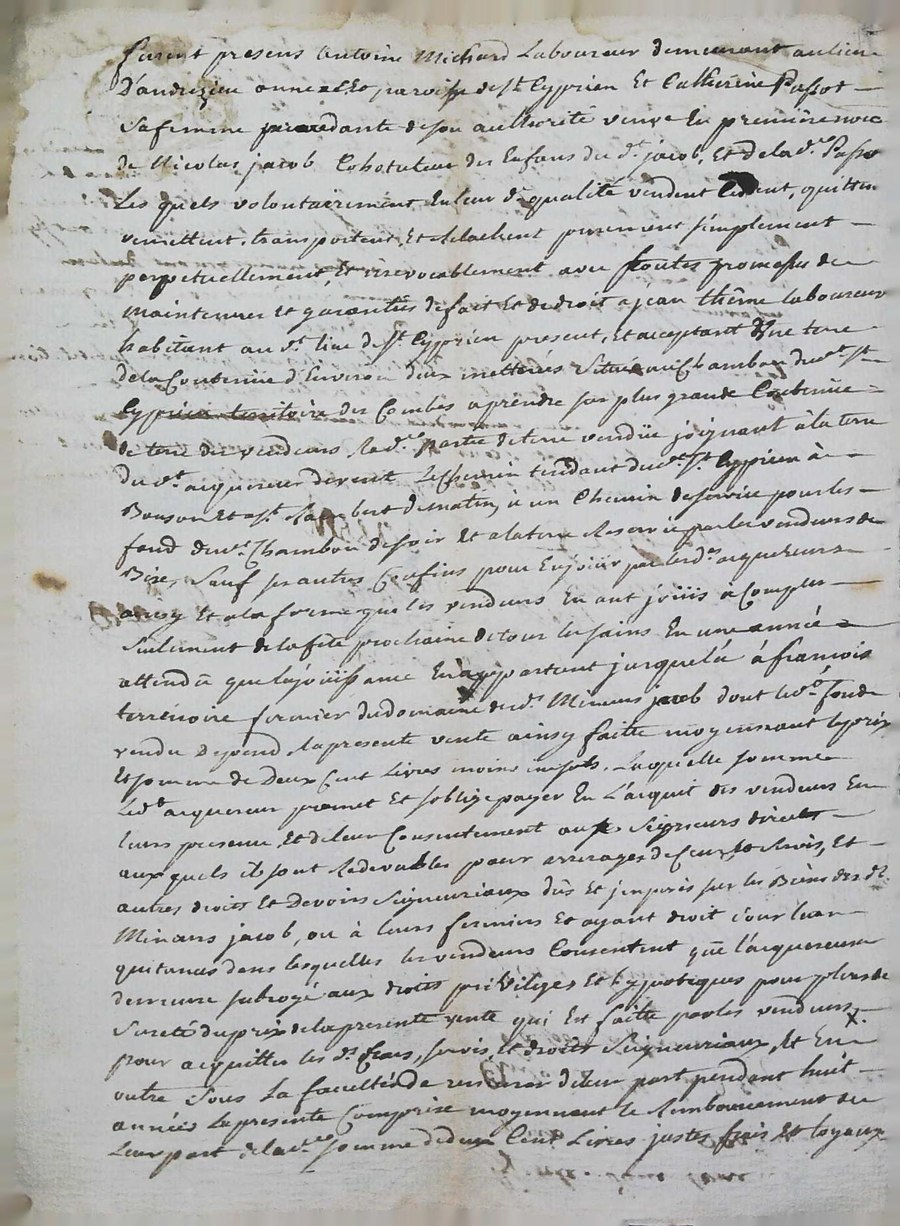 furent presens Antoine Michard Laboureur demeurant au lieu
D'andrezieu annexe de paroisse de St Cyprien Et Catherine Passot
Sa femme procedante de son authorité veuve En premiere noce
de Nicolas jacob Cohotuteur des Enfans du dt jacob, Et de lad. Passot
Les quels volontairement En leur dt qualité vendent Cedent, quittent
remettent, transportent, Et delachent purement simplement
perpetuellement, Et irrevocablement avec toutes promesses de
maintenues et garanties de fait Et de droit a jean thême laboureur
habitant au dt lieu de St Cyprien present, et acceptant Une terre
de la Contenue d'Environ deux metterées Située au Chambon du dt St
Cyprien territoire des Combes a prendre sur plus grande Contenüe
de terre des vendeurs lad. partie de terre vendüe joignant à la terre
du dt acquereur de vent Le Chemin tendant du dt St Cyprien à
Bonson Et a St Rambert de matin, à un Chemin de service pour les
fond du dt Chambon de soir Et a la terre Reservée par les vendeurs de
Bize, Sauf ses autres Confins pour En joüir par led. acquereurs
ainsy Et a la forme que les vendeurs En ont joüiis a Compter
Seulement de la fête prochaine de tous les saints En une année
attendu que la joüissance En appartient jusque la à francois
terrenoire fermier du domaine desd. Mineurs jacob dont led. fonds
vendu Depend la presente vente ainsy faitte moyennant le prix
Et somme de Deux Cent Livres moins sols. Laquelle somme
Led. acquereur promet Et s'oblige payer En L'acquit des vendeurs En
leurs presence Et de leur Consentement aux Seigneurs directs
aux quels ils sont Redevables pour arrerages de Cens, Et servis, Et
autres droits Et Devoirs Seigneuriaux dûs Et imposés sur les Biens des dt
Mineurs jacob, ou à leurs fermiers Et ayant droit pour leur
quitances dans lesquelles les vendeurs Consentent que l'acquereur
demeure subrogé aux droits privileges Et hypoteques pour plus de
Sureté du prix de la presente vente qui Est faitte par les vendeurs
pour acquitter les dt Cens, servis, Et droits Seigneuriaux, Et En
outre Sous La faculté de de leur part pendant huit
années La presente Comprise moyennant le Remboursement de
Leur part de lad. somme de deux Cent Livres justes frais Et loyaux